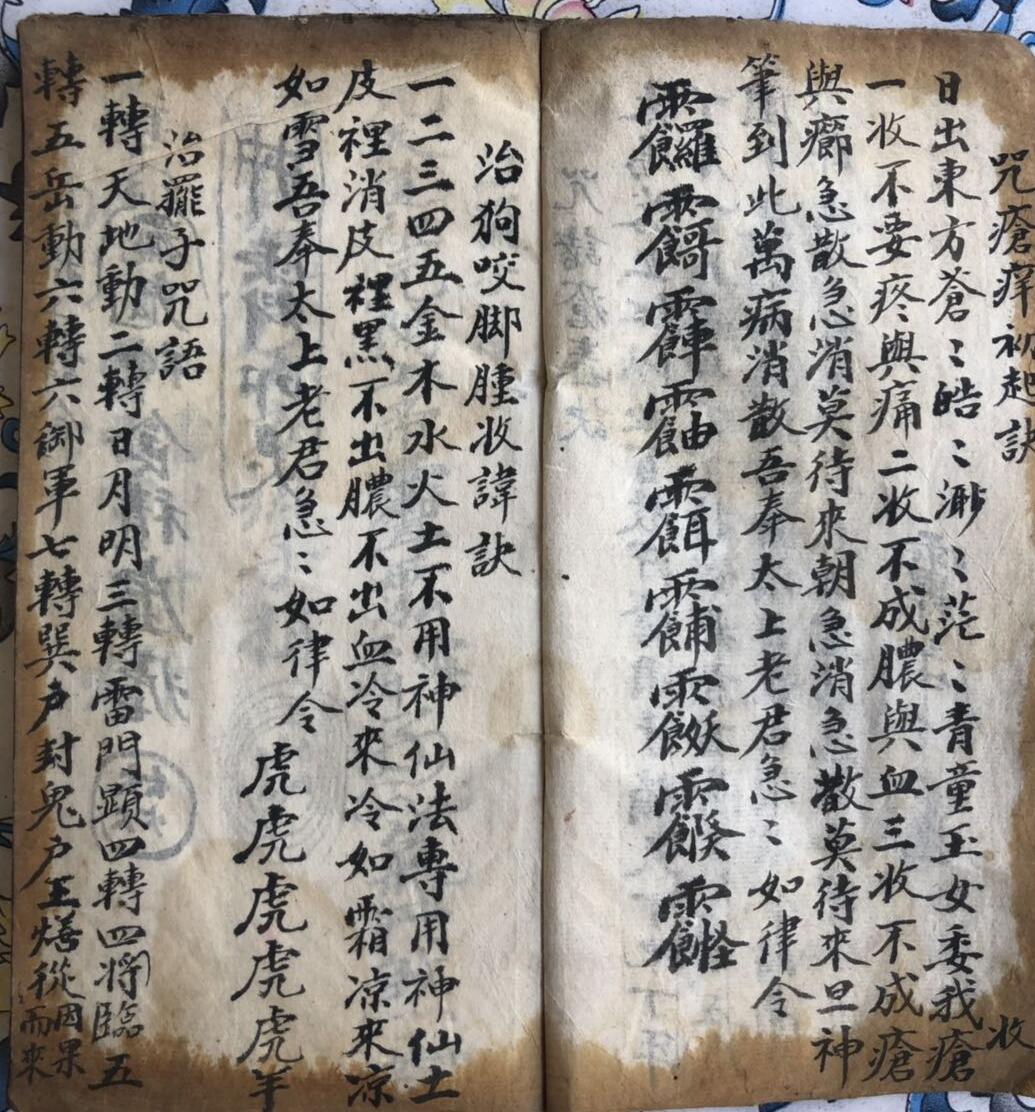 咒瘡痒初起訣
日出東方蒼〻皓〻渺〻茫〻青童玉女委我收瘡
一收不要疼與痛二收不成膿與血三收不成瘡
與癤急散急消莫待來朝急消急散莫待來旦神
筆到此萬病消散吾奉太上老君急〻如律令
治狗咬脚腫收諱訣
一二三四五金木水火土不用神仙法專用神仙土
皮裡消皮裡黑不出膿不出血冷來冷如霜凉來凉
如雪吾奉太上老君急〻如律令虎虎虎虎虎羊
治罷子咒語
一轉天地動二轉日月明三轉雷門顕四轉四將臨五
轉五岳動六轉六御軍七轉巽戶封鬼戶王 從因果而來